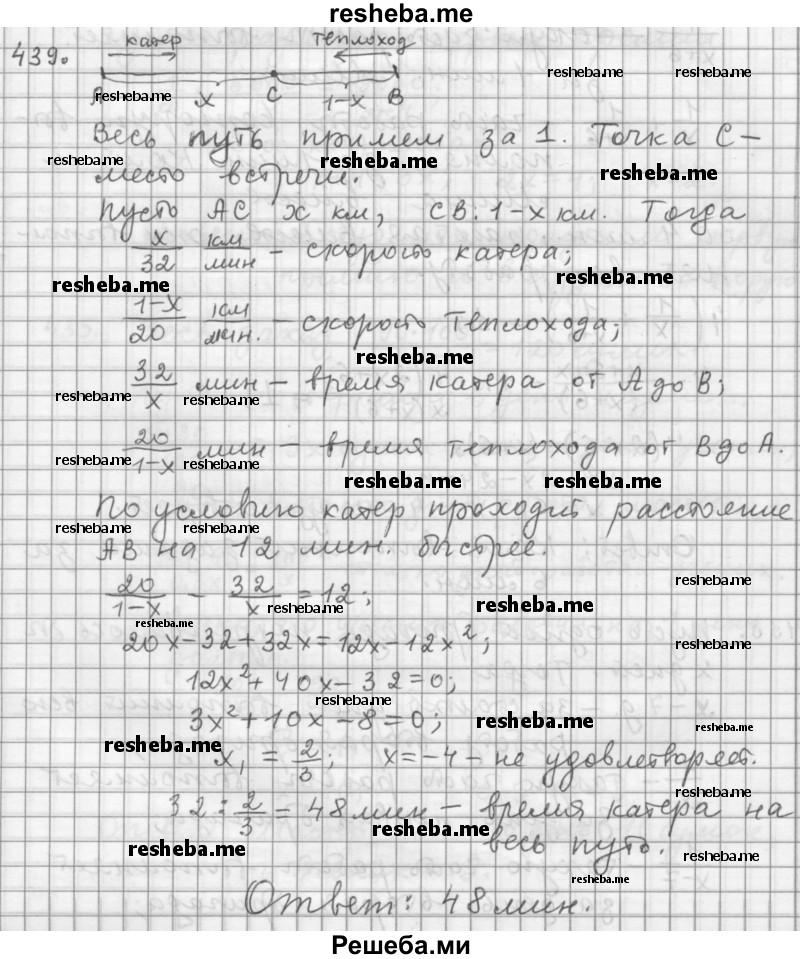 resheba.me
439.
катер теплоход
resheba.me resheba.me
A resheba.me x C 1-x B
Весь путь примем за 1. Точка С-
resheba.me resheba.me resheba.me
место встречи.
Пусть АС x км, СВ: 1-x км. Тогда
x/32 км/мин - скорость катера;
resheba.me resheba.me
1-x/20 км/мин. - скорость теплохода;
resheba.me
32/x мин - время катера от А до В;
resheba.me resheba.me
20/1-x мин - время теплохода от В до А.
resheba.me resheba.me
resheba.me resheba.me
По условию катер проходит расстояние
resheba.me resheba.me
АВ на 12 мин. быстрее.
resheba.me
20/1-x - 32/x = 12;
resheba.me resheba.me
resheba.me
20x-32+32x=12x-12x²;
resheba.me
12x²+40x-32=0;
resheba.me
3x²+10x-8=0;
resheba.me resheba.me
resheba.me
x₁ = 2/3; x=-4 - не удовлетворяет.
resheba.me
32:2/3 = 48 мин - время катера на
resheba.me
весь путь.
resheba.me resheba.me
resheba.me
Ответ: 48 мин.
Решеба.ми